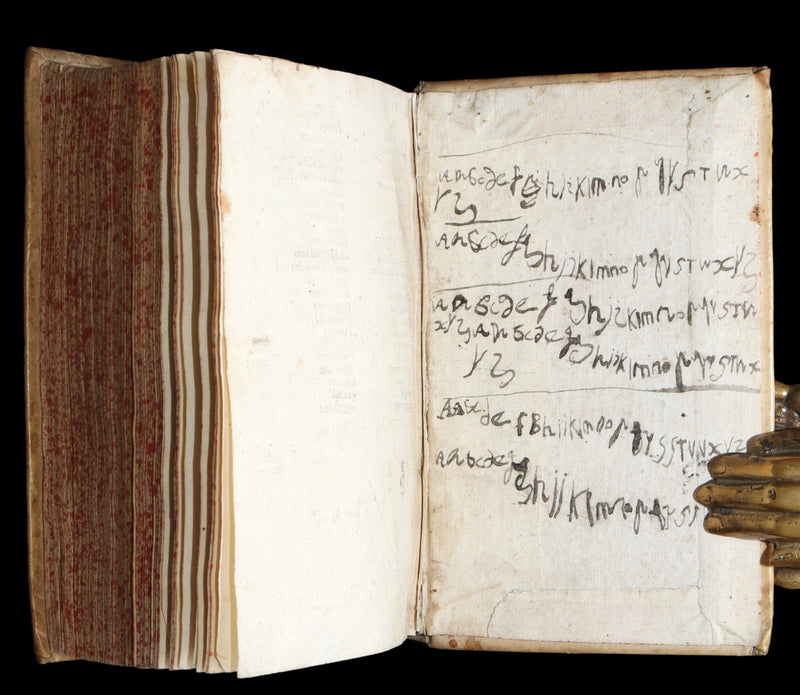 A a b c d e f g h i j k l m n o p q r s T u x
y z
A a b c d e f g h i j k l m n o p q r s T u x y z
A a b c d e f g h i j k l m n o p q r s T u
x y z A a b c d e f g h i j k l m n o p q r s T u x
y z
A a b c d e f B h i j k l m n o p q r s s T u x y z
A a b c d e f g h i j k l m n o p q r s s